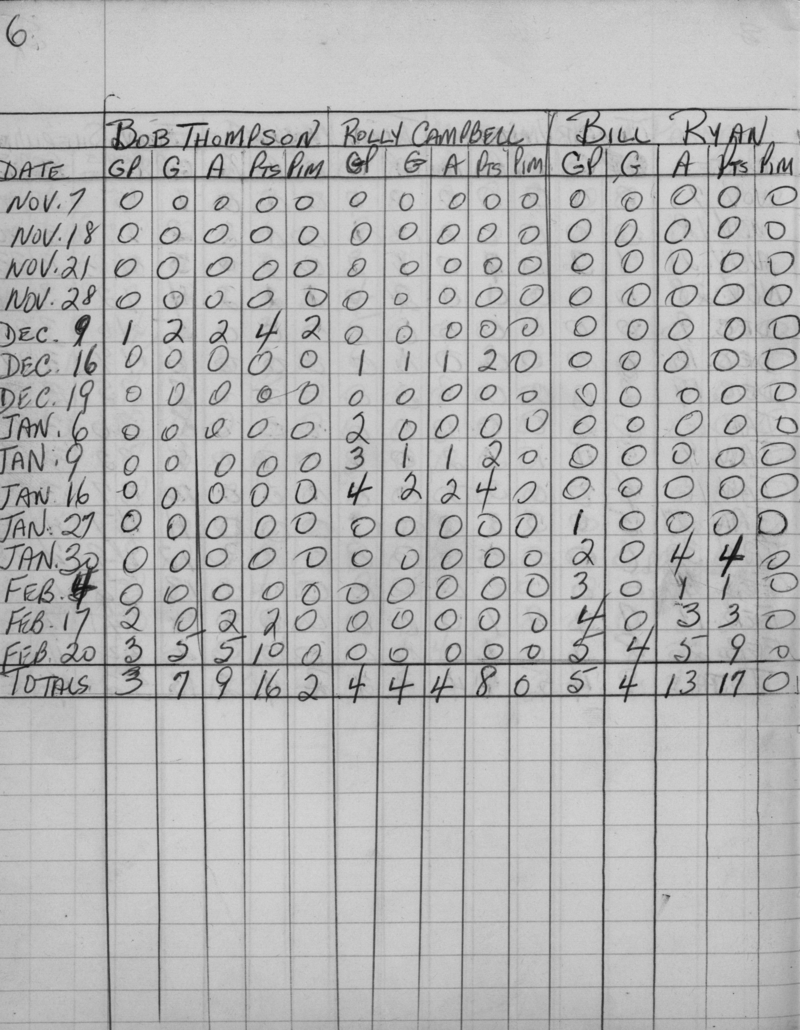 6
BOB THOMPSON ROLLY CAMPBELL BILL RYAN
DATE GP G A Pts PiM GP G A Pts PiM GP G A Pts PiM
NOV. 7 0 0 0 0 0 0 0 0 0 0 0 0 0 0 0
NOV. 18 0 0 0 0 0 0 0 0 0 0 0 0 0 0 0
NOV. 21 0 0 0 0 0 0 0 0 0 0 0 0 0 0 0
NOV. 28 0 0 0 0 0 0 0 0 0 0 0 0 0 0 0
DEC. 9 1 2 2 4 2 0 0 0 0 0 0 0 0 0 0
DEC. 16 0 0 0 0 0 1 1 1 2 0 0 0 0 0 0
DEC. 19 0 0 0 0 0 0 0 0 0 0 0 0 0 0 0
JAN. 6 0 0 0 0 0 2 0 0 0 0 0 0 0 0 0
JAN. 9 0 0 0 0 0 3 1 1 2 0 0 0 0 0 0
JAN. 16 0 0 0 0 0 4 2 2 4 0 0 0 0 0 0
JAN. 27 0 0 0 0 0 0 0 0 0 0 1 0 0 0 0
JAN. 30 0 0 0 0 0 0 0 0 0 0 2 0 4 4 0
FEB. 4 0 0 0 0 0 0 0 0 0 0 3 0 1 1 0
FEB. 17 2 0 2 2 0 0 0 0 0 0 4 0 3 3 0
FEB. 20 3 5 5 10 0 0 0 0 0 0 5 4 5 9 0
TOTALS 3 7 9 16 2 4 4 4 8 0 5 4 13 17 0